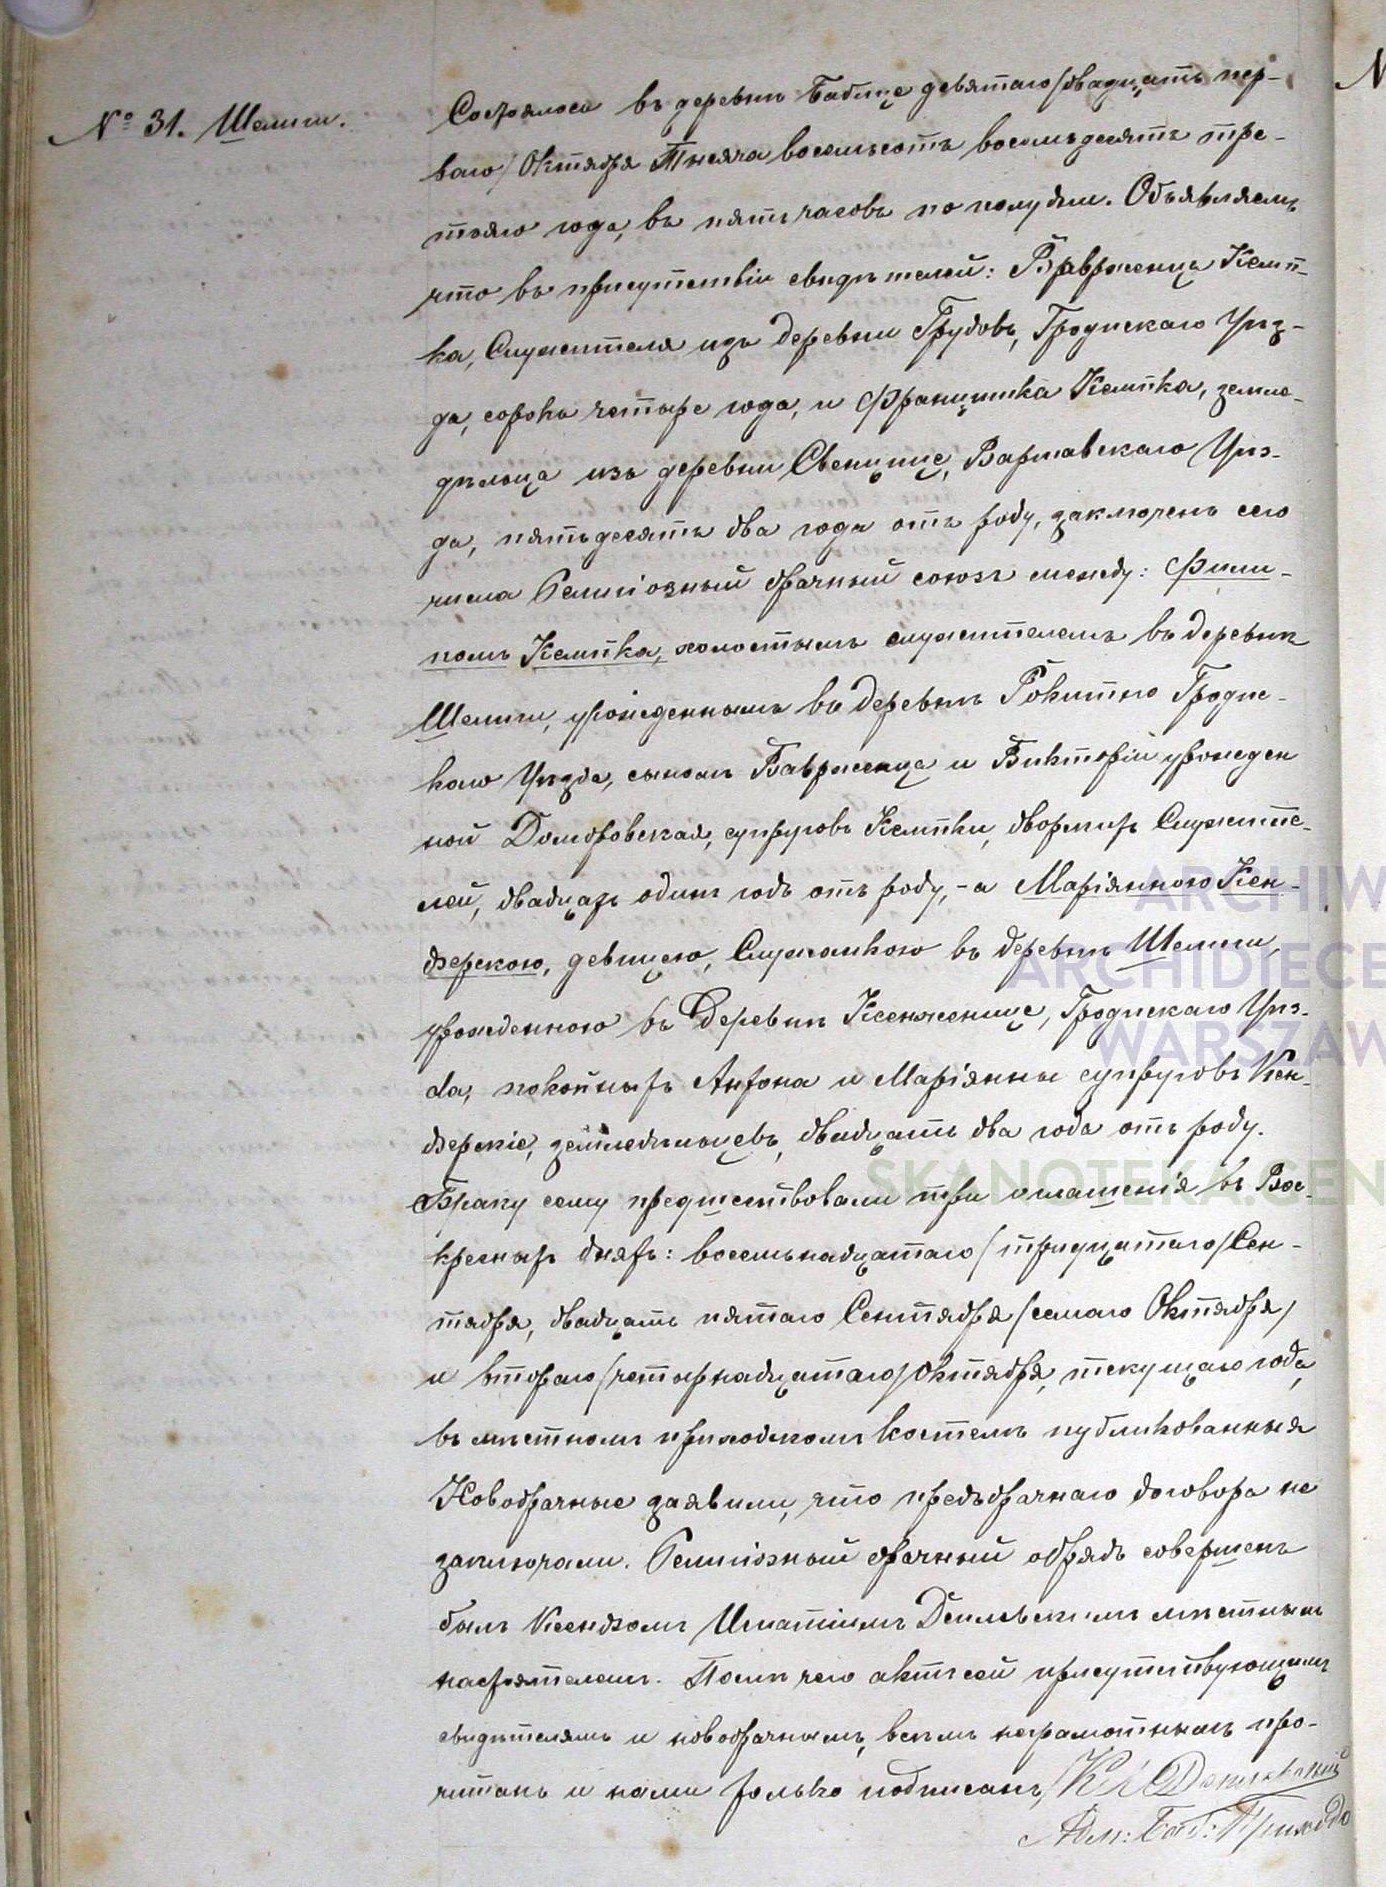 № 31. Шелиги.
Состоялось въ деревнѣ Бабице девятаго/двадцать пер-
ваго/Октября Тысяча восемьсотъ восемьдесятъ тре-
тьяго года, въ пять часовъ по полудни. Объявляемъ
что въ присутствіи свидѣтелей: Ваврженца Кемп-
ка, Служителя изъ деревни Грудовъ, Гродискаго Уѣз-
да, сорокъ четыре года, и Францишка Кемпка, земле-
дѣльца изъ деревни Свенцице, Варшавскаго Уѣз-
да, пятьдесятъ два года отъ роду, заключенъ сего
числа Религіозный брачный союзъ между: Фили-
помъ Кемпка, холостымъ служителемъ въ деревнѣ
Шелиги, урожденнымъ въ деревнѣ Рокитно Гродис-
каго Уѣзда, сыномъ Ваврженца и Викторіи урожден
ной Домбровская, супруговъ Кемпки, дворныхъ Служите-
лей, двадцать одинъ годъ отъ роду,-а Маріянною Кен-
дзерскою, девицею, Служанкою въ деревнѣ Шелиги,
урожденною въ деревнѣ Ксенженице, Гродискаго Уѣз-
да, покойныхъ Антона и Маріянны супруговъ Кен-
дзерскіе, земледѣльцевъ, двадцать два года отъ роду.
Браку сему предшествовали три оглашенія въ Вос-
кресныхъ дняхъ: восемьнадцатаго/тридцатаго/Сен-
тября, двадцать пятаго Сентября/семаго Октября/
и втораго/четырнадцатаго/Октября, текущаго года,
въ мѣстномъ приходскомъ костелѣ публикованныя
Новобрачные заявили, что предъбрачнаго договора не
заключали. Религіозный брачный обрядъ совершенъ
былъ Ксендзомъ Игнатіемъ мѣстнымъ
настоятелемъ. Послѣ чего актъ сей присутствующимъ
свидѣтелямъ и новобрачнымъ, всѣмъ неграмотнымъ про-
читанъ и нами только подписанъ,
Адм: Баб: Прихода
ARCHIW
ARCHIDIECE
WARSZAW
SKANOTEKA.GEN